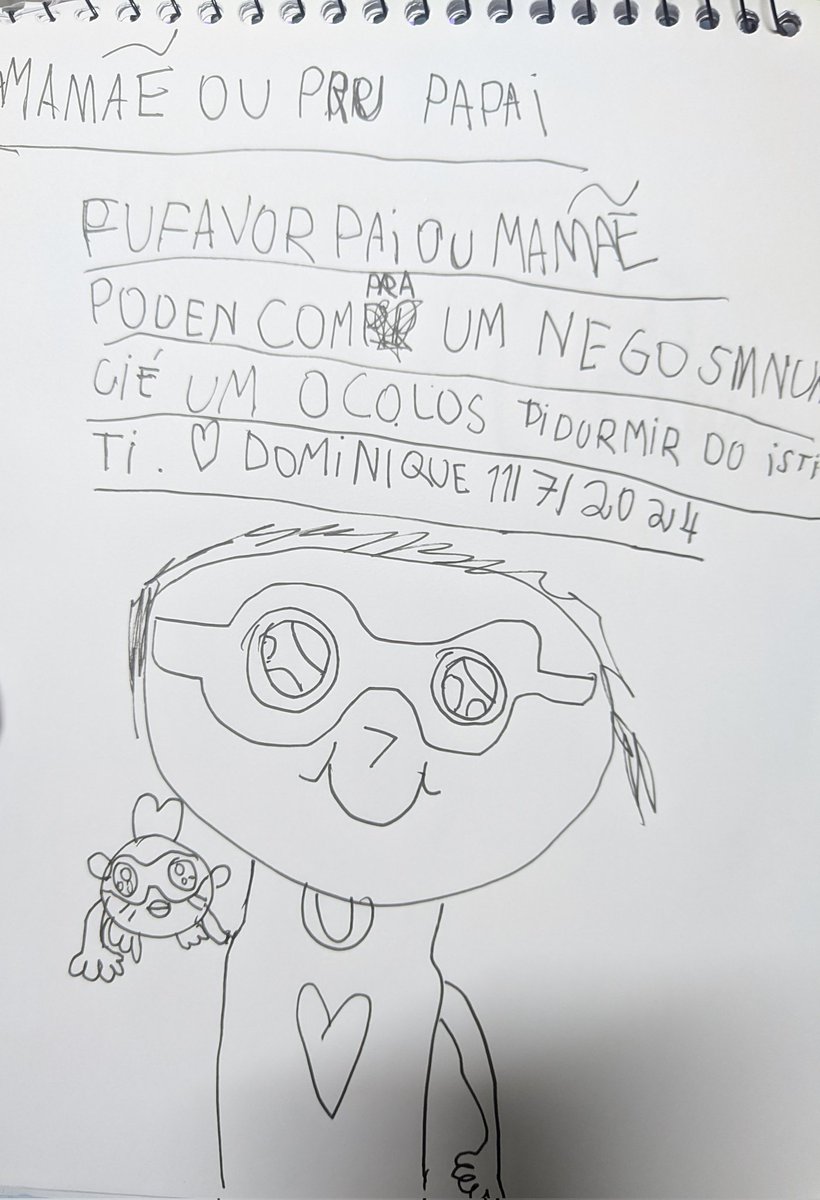 MAMÃE OU PRU PAPAi
FUFAVOR PAi OU MAMÃE
PODEN COMPRA UM NEGOSMNUM
CiÉ UM OCOLOS DiDORMiR DO iSTi
Ti. ♡ DOMiNiQUE 11/7/2024